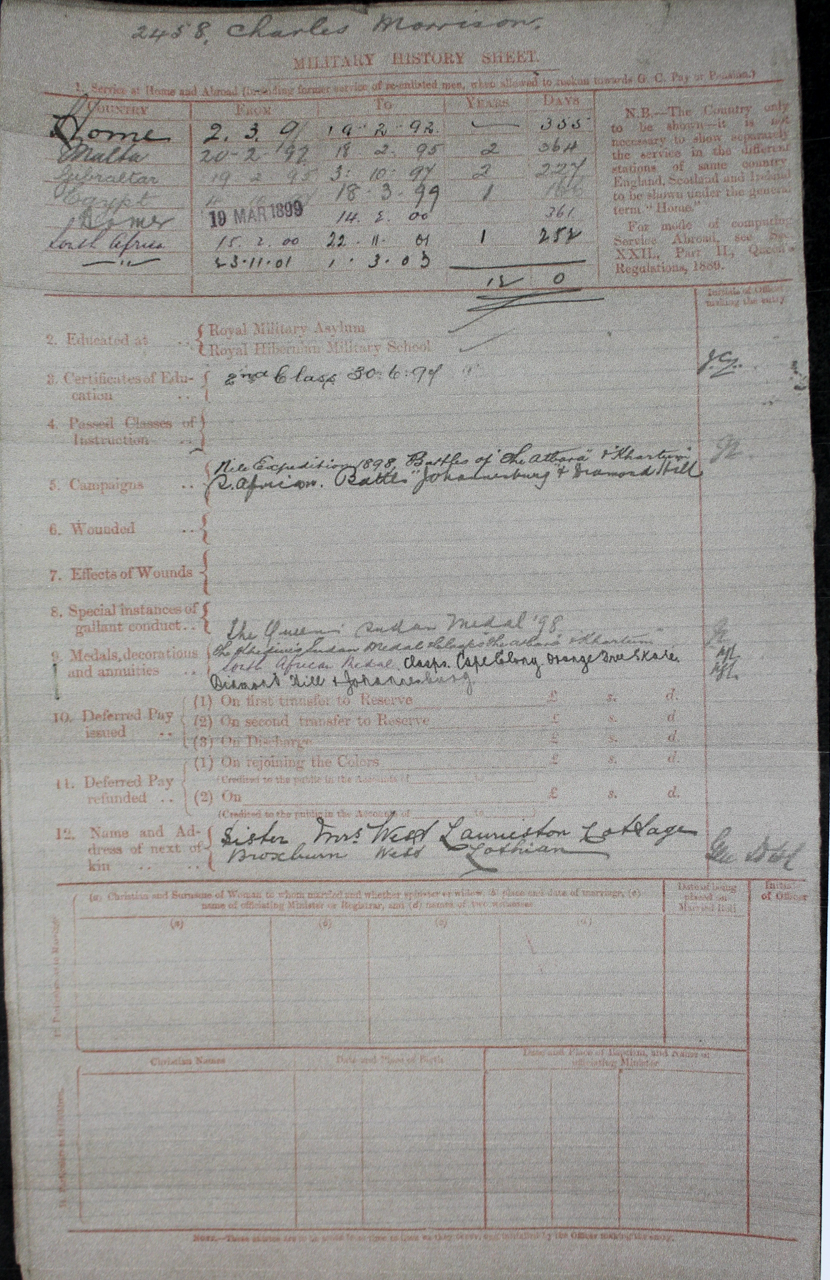 2458. Charles Morrison.
MILITARY HISTORY SHEET.
1. Service at Home and Abroad (including former service of re-enlisted men, when allowed to reckon towards G. C. Pay or Pension.)
COUNTRY FROM TO YEARS DAYS
Home 2. 3. 91 19 - 2 - 92 — 355
Malta 20-2-92 18 2. 95 2 364
Gibraltar 19 2 95 3: 10: 97 2 227
Egypt 18-3-99 1
Home 19 MAR 1899 14. 2. 00 361
South Africa 15. 2. 00 22. 11. 01 1 252
—"— 23-11-01 1. 3. 03
12 0
N.B.—The Country only
to be shown—it is not
necessary to show separately
the service in the different
stations of same country
England, Scotland and Ireland
to be shown under the general
term "Home."
For mode of computing
Service Abroad, see Sec.
XXII., Part II., Queen's
Regulations, 1889.
Initials of Officer
making the entry
2. Educated at .. Royal Military Asylum
Royal Hibernian Military School
3. Certificates of Edu-
cation .. 2nd Class 30.6.94
4. Passed Classes of
Instruction ..
5. Campaigns .. Nile Expedition 1898, Battles of "the Atbara" & "Khartum"
S. African. Battles "Johannesburg" & Diamond Hill
6. Wounded ..
7. Effects of Wounds
8. Special instances of
gallant conduct ..
9. Medals, decorations
and annuities The Queen's Sudan Medal '98
the Khedive's Sudan Medal & clasps "the Atbara" & "Khartum"
South African Medal, clasps. Cape Colony, Orange Free State,
Diamond Hill & Johannesburg
10. Deferred Pay
issued .. (1) On first transfer to Reserve £ s. d.
(2) On second transfer to Reserve £ s. d.
(3) On Discharge £ s. d.
11. Deferred Pay
refunded .. (1) On rejoining the Colors £ s. d.
(Credited to the public in the Accounts of )
(2) On £ s. d.
(Credited to the public in the Accounts of )
12. Name and Ad-
dress of next of
kin .. Sister Mrs West Laurieston Cottage
Broxburn West Lothian
(a) Christian and Surname of Woman to whom married and whether spinster or widow, (b) place and date of marriage, (c)
name of officiating Minister or Registrar, and (d) names of two witnesses
Date of being
placed on
Married Roll
Initials
of Officer
(a) (b) (c) (d)
Christian Names Date and Place of Birth Date and Place of Baptism, and Name of
officiating Minister